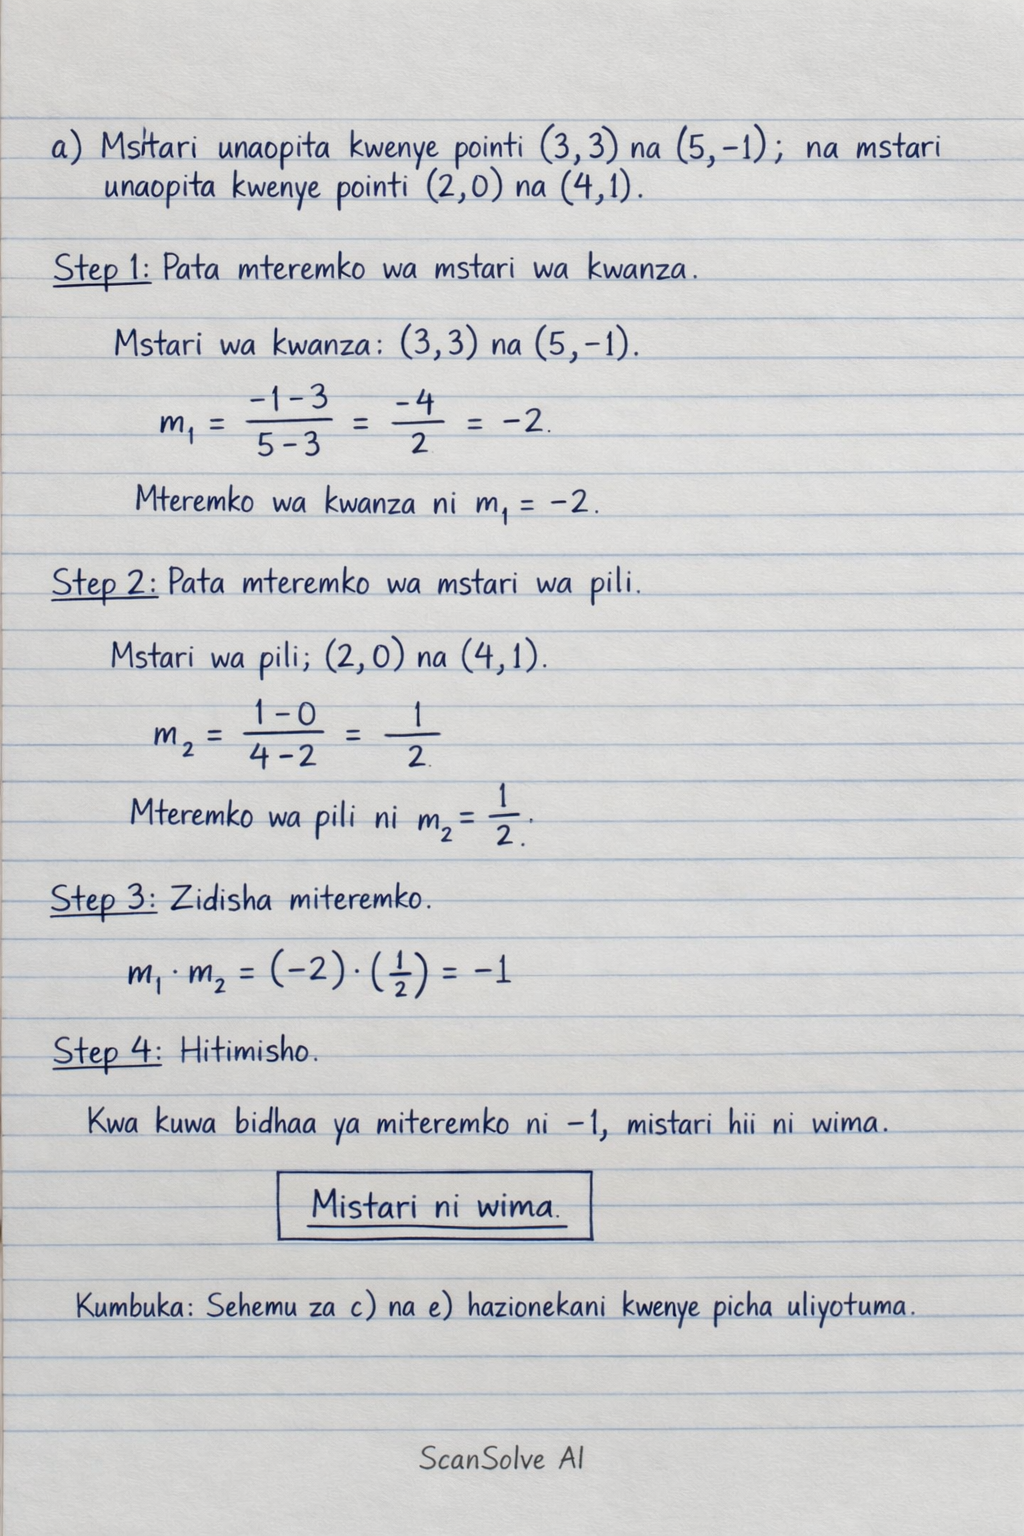 a) Mstari unaopita kwenye pointi (3,3) na (5,-1); na mstari
unaopita kwenye pointi (2,0) na (4,1).
Step 1: Pata mteremko wa mstari wa kwanza.
Mstari wa kwanza: (3,3) na (5,-1).
m₁ = \frac{-1-3}{5-3} = \frac{-4}{2} = -2.
Mteremko wa kwanza ni m₁ = -2.
Step 2: Pata mteremko wa mstari wa pili.
Mstari wa pili; (2,0) na (4,1).
m₂ = \frac{1-0}{4-2} = \frac{1}{2.}
Mteremko wa pili ni m₂ = \frac{1}{2}.
Step 3: Zidisha miteremko.
m₁ · m₂ = (-2) · (\frac{1}{2}) = -1
Step 4: Hitimisho.
Kwa kuwa bidhaa ya miteremko ni -1, mistari hii ni wima.
Mistari ni wima.
Kumbuka: Sehemu za c) na e) hazionekani kwenye picha uliyotuma.
ScanSolve AI